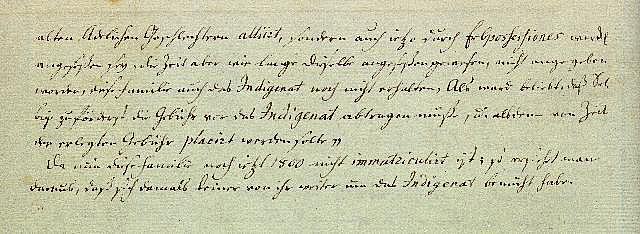 alten Adelichen Geschlechtern alliirt, sondern auch ietzo durch Erbpossessiones wircklich
angeseßen sey, die Zeit aber wie lange dieselbe angeseßen gewesen, nicht angegeben
worden, diese Familie auch das Indigenat noch nicht erhalten, Als ward beliebt, daß Sel-
bige zuförderst die Gebühr vor das Indigenat abtragen müste, u. alsdenn von Zeit
der erlegten Gebühr placirt werden solte
Da nun diese Familie noch ietzt 1800 nicht immatriculirt ist; so ersieht man
daraus, daß sich damals keiner von ihr weiter um das Indigenat bemüht habe.